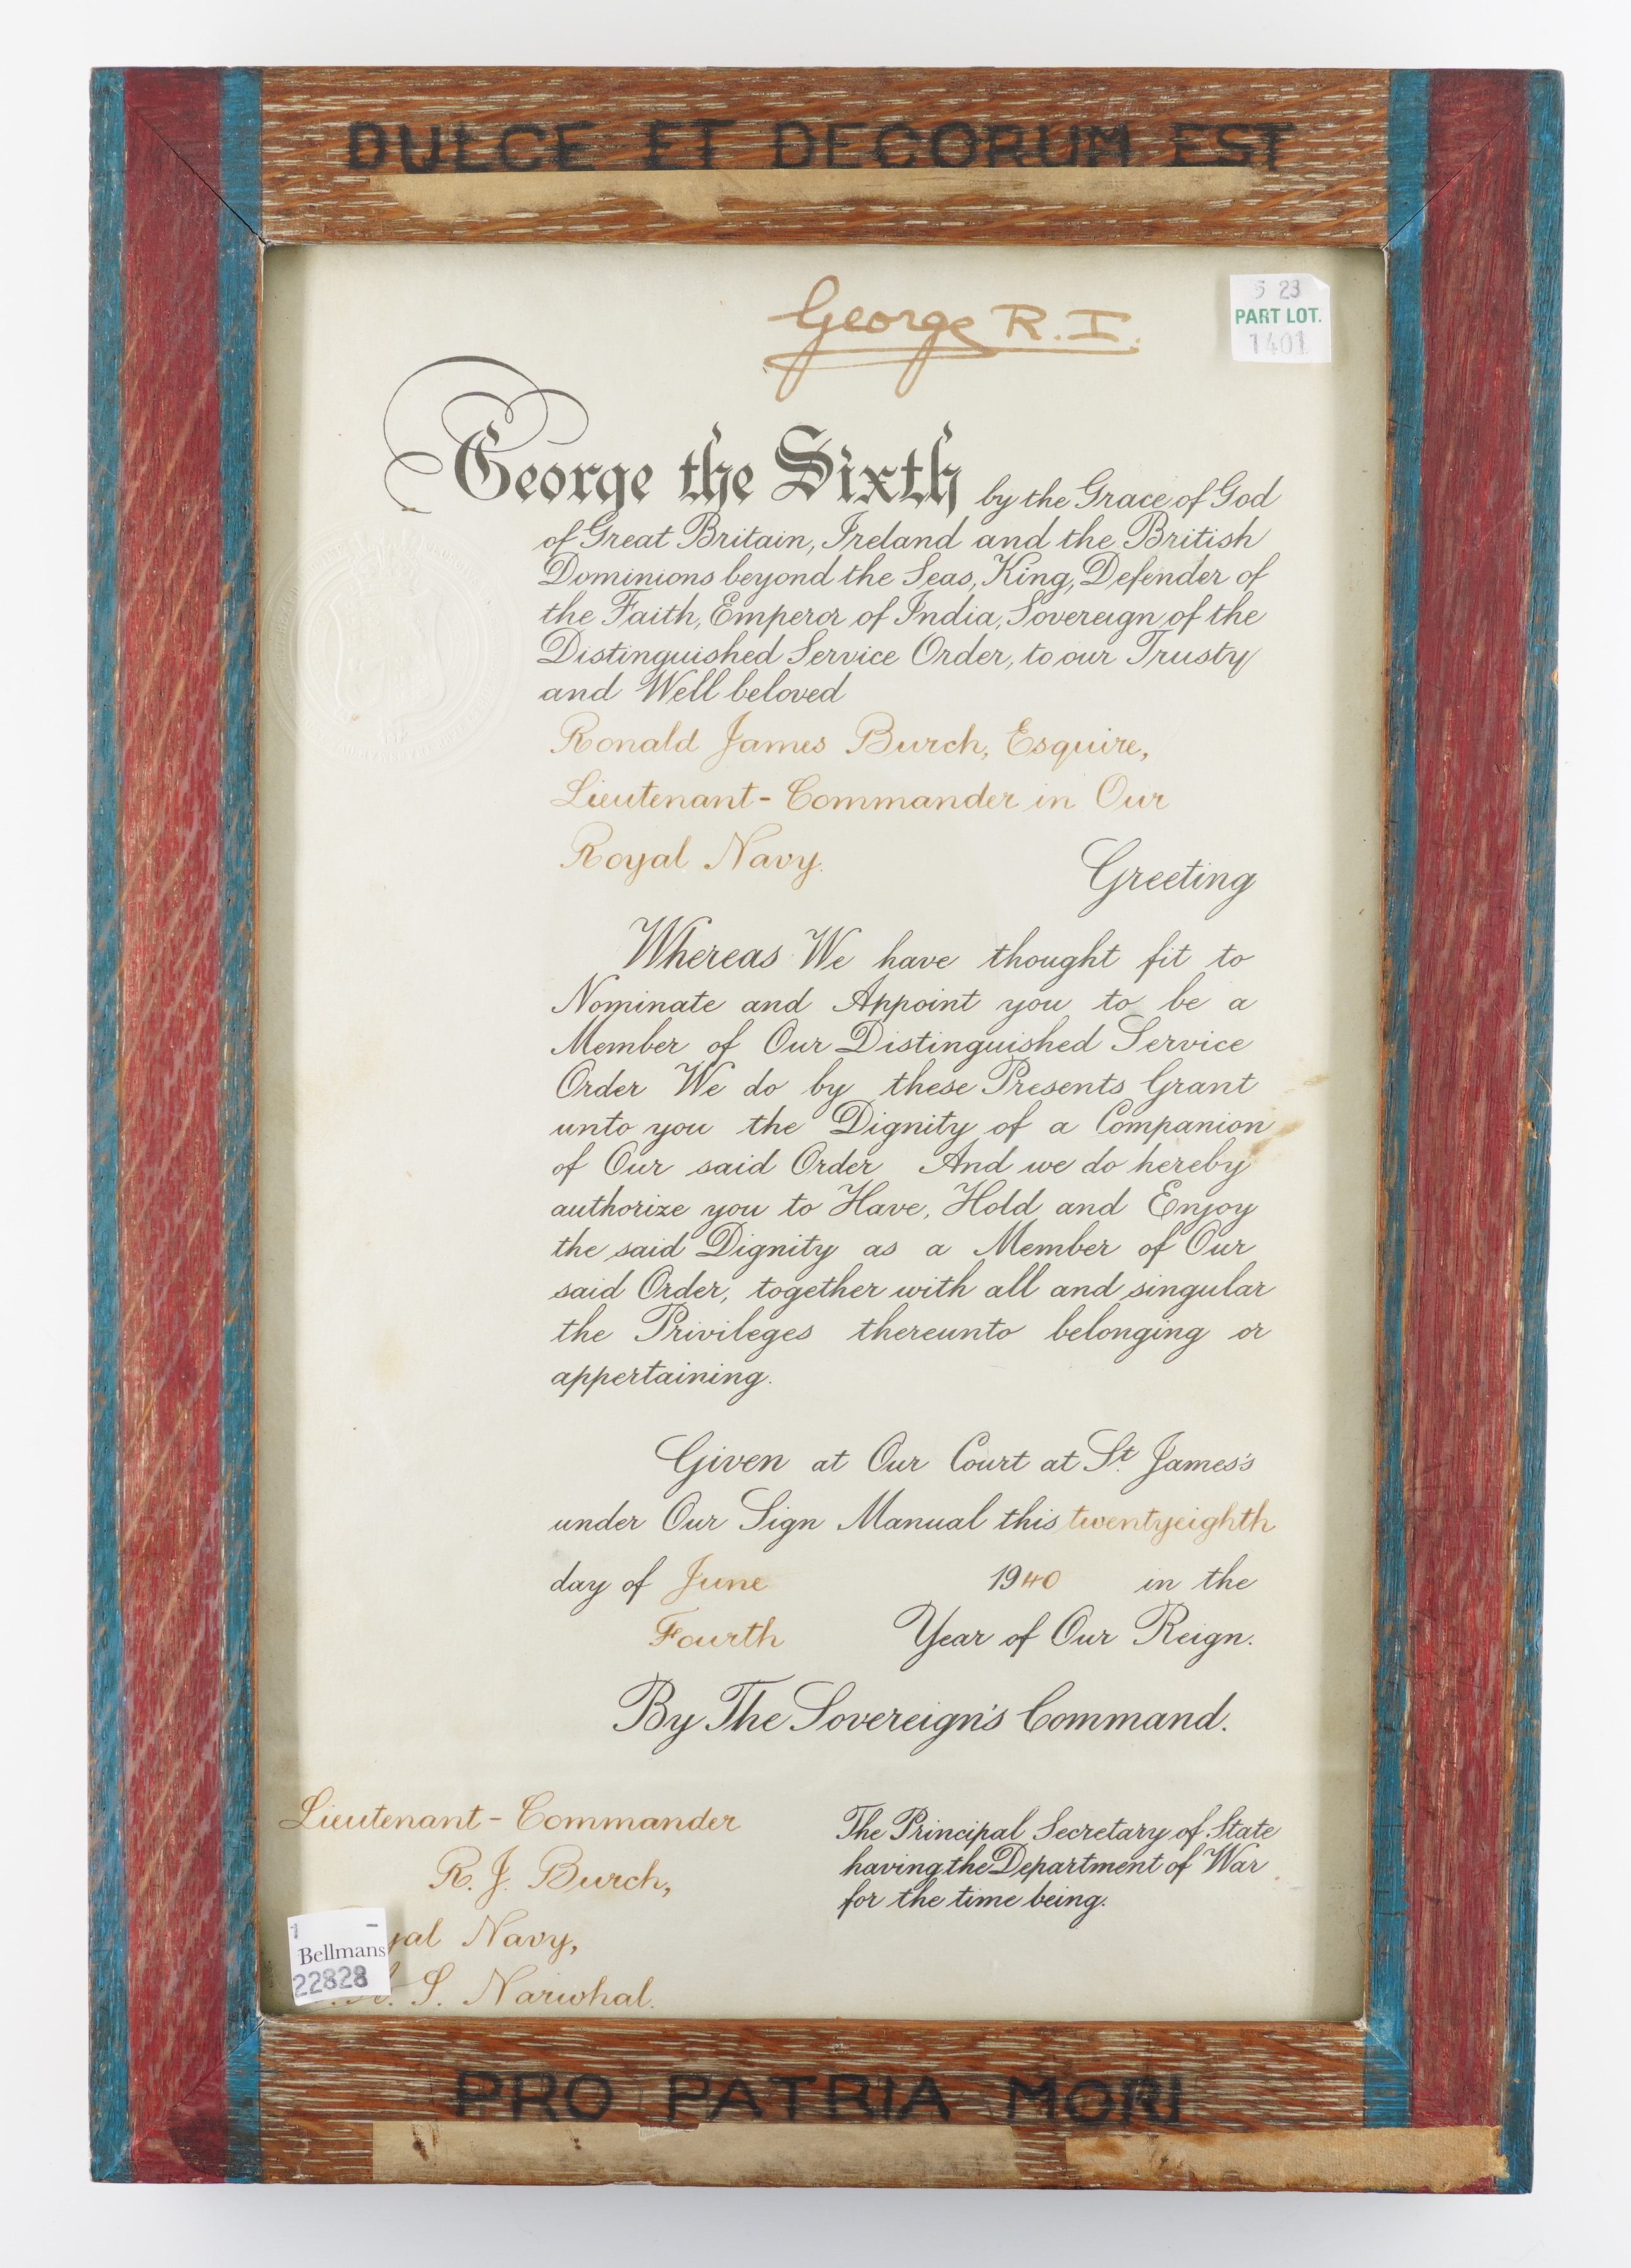 DULCE ET DECORUM EST
George R.I.
5 23
PART LOT.
1401
George the Sixth by the Grace of God
of Great Britain, Ireland and the British
Dominions beyond the Seas, King, Defender of
the Faith, Emperor of India, Sovereign of the
Distinguished Service Order, to our Trusty
and Well beloved
Ronald James Burch, Esquire,
Lieutenant-Commander in Our
Royal Navy.
Greeting
Whereas We have thought fit to
Nominate and Appoint you to be a
Member of Our Distinguished Service
Order We do by these Presents Grant
unto you the Dignity of a Companion
of Our said Order And we do hereby
authorize you to Have, Hold and Enjoy
the said Dignity as a Member of Our
said Order, together with all and singular
the Privileges thereunto belonging or
appertaining.
Given at Our Court at St. James's
under Our Sign Manual this twentyeighth
day of June 1940 in the
Fourth Year of Our Reign.
By The Sovereign's Command.
Lieutenant-Commander
R. J. Burch,
yal Navy,
S. Narwhal.
The Principal Secretary of State
having the Department of War
for the time being.
1 -
Bellmans
22828
PRO PATRIA MORI